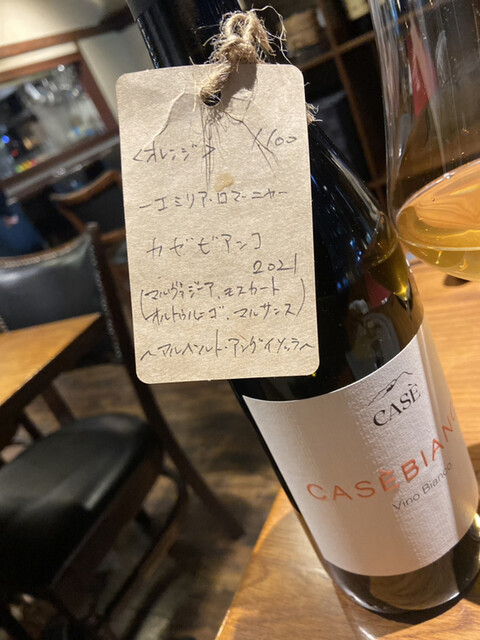 <オレンジ> 1100
ーエミリア・ロマーニャー
カゼビアンコ
2021
(マルヴァジーア、モスカート
オルトゥルーゴ、マルサンヌ)
～アルベルト・アングイッソラ～
CASÈ
CASEBIAN
Vino Bianco